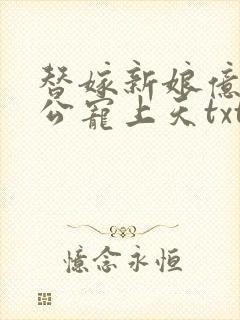 替嫁新娘億
公寵上天txt
憶念永恒